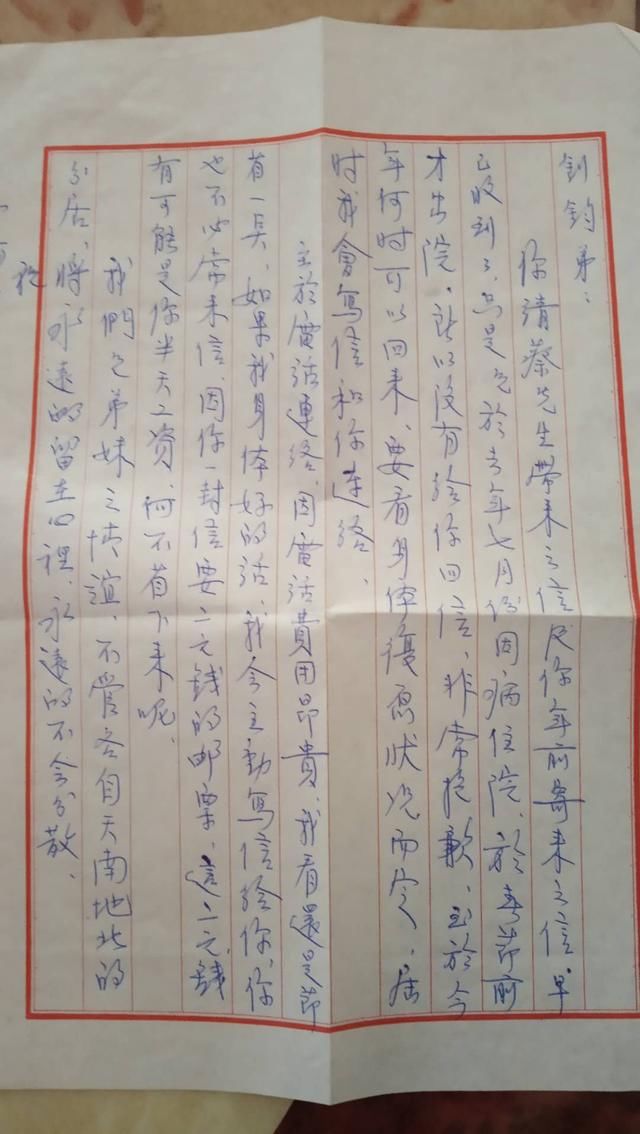 釗鈞弟：
你請蔡先生帶來之信及你年前寄来之信早
已收到了，只是兄於去年七月份因病住院，於春節前
才出院，所以没有给你回信，非常抱歉，至於今
年何时可以回来，要看身体復原状况而定，届
时我會写信和你连络、
至於電話連络，因電話費用昂貴，我看還是節
省一只，如果我身体好的话，我会主動写信给你，你
也不必常来信，因你一封信要二元錢的邮票，這二元錢
有可能是你半天工资，何不省下来呢、
我們兄弟妹之情誼，不管各自天南地北的
分居，將永遠的留在心裡，永遠的不会分散、
祝